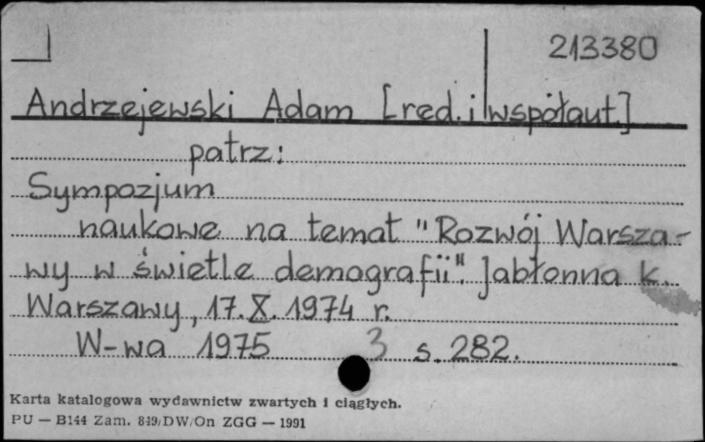 213380
Andrzejewski Adam [red. i współaut.]
patrz:
Sympozjum
naukowe na temat "Rozwój Warsza-
wy w świetle demografii". Jabłonna k.
Warszawy, 17. X. 1974 r.
W-wa 1975 3 s. 282.
Karta katalogowa wydawnictw zwartych i ciągłych.
PU — B144 Zam. 849/DW/On ZGG — 1991